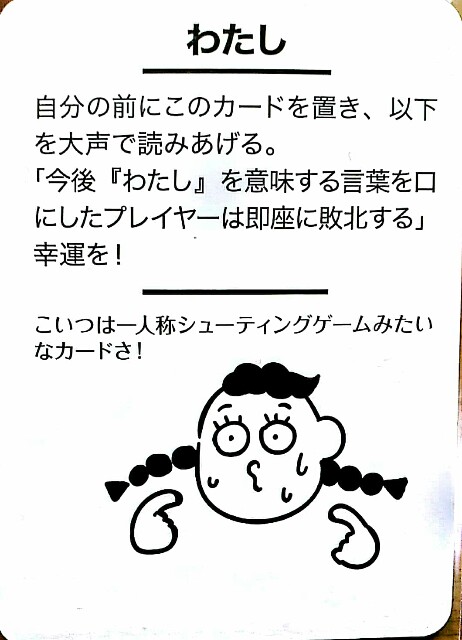 わたし
自分の前にこのカードを置き、以下
を大声で読みあげる。
「今後『わたし』を意味する言葉を口
にしたプレイヤーは即座に敗北する」
幸運を!
こいつは一人称シューティングゲームみたい
なカードさ!